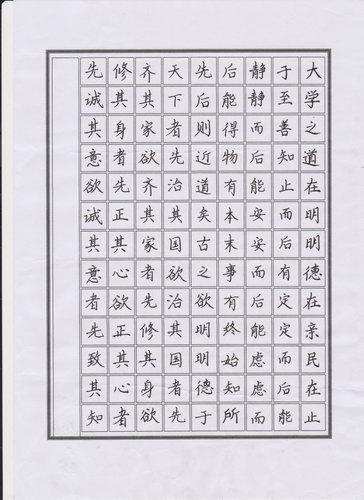 大学之道在明明德在亲民在止
于至善知止而后有定定而后能
静静而后能安安而后能虑虑而
后能得物有本末事有终始知所
先后则近道矣古之欲明明德于
天下者先治其国欲治其国者先
齐其家欲齐其家者先修其身欲
修其身者先正其心欲正其心者
先诚其意欲诚其意者先致其知